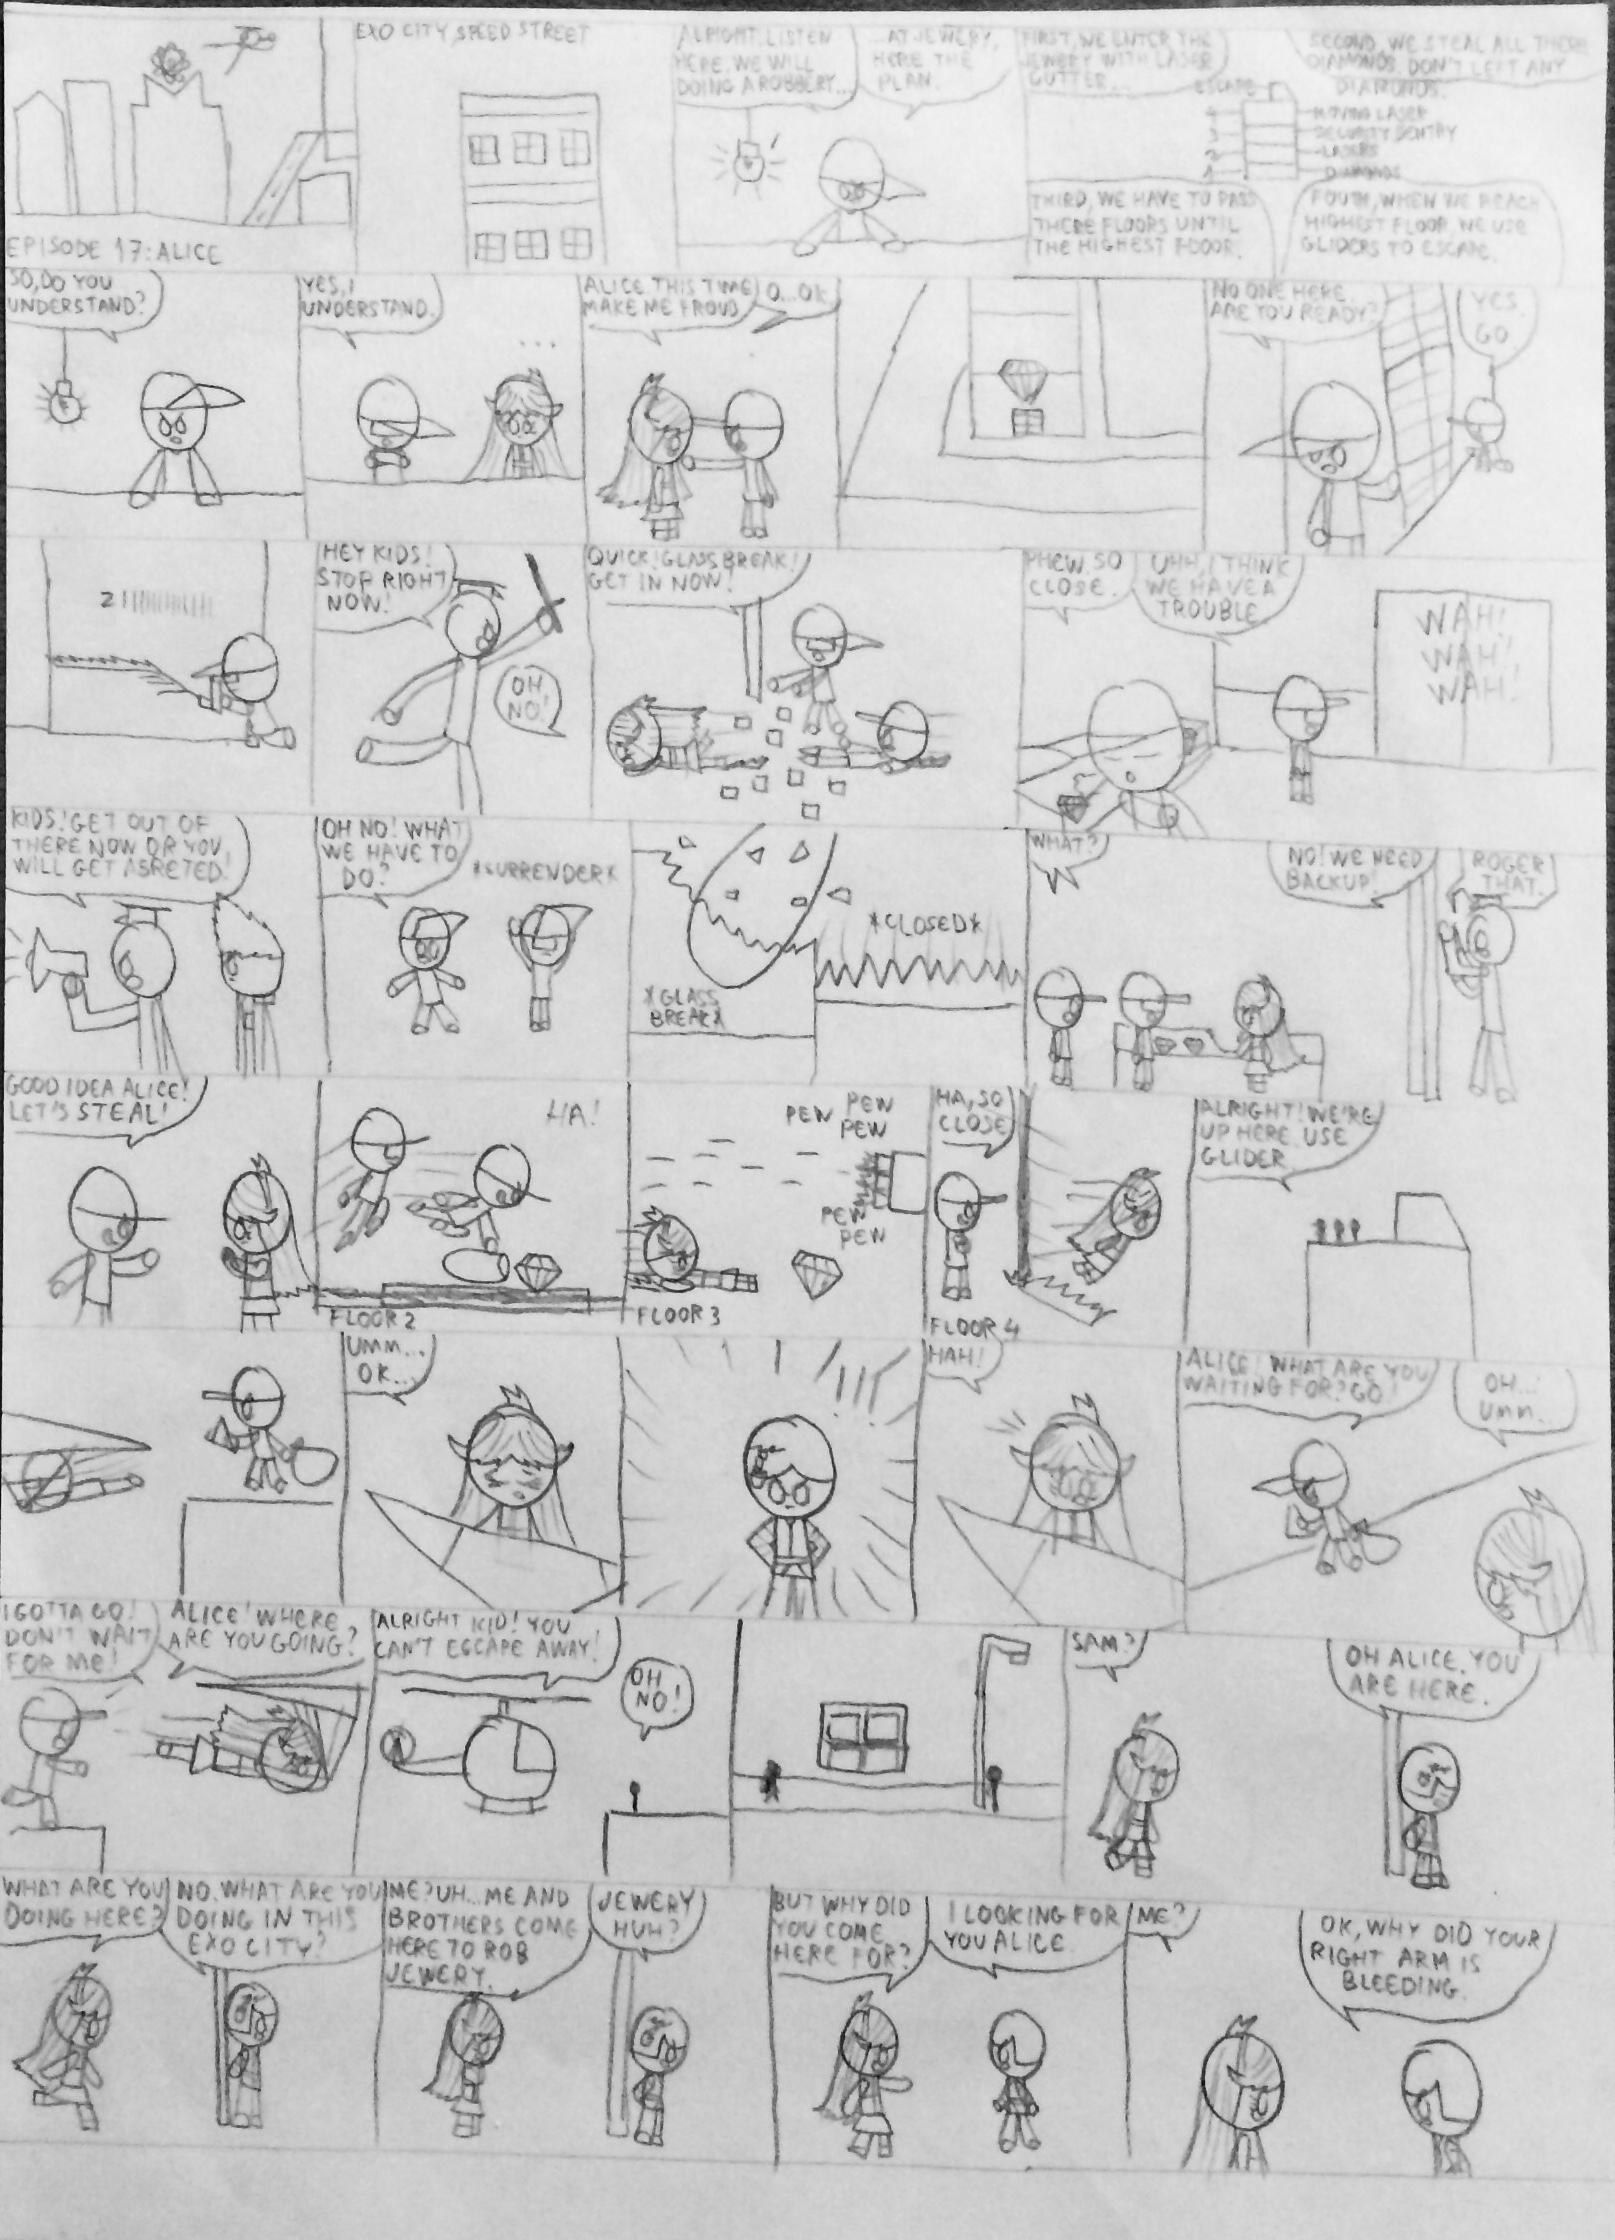 EPISODE 17: ALICE
EXO CITY, SPEED STREET
ALRIGHT, LISTEN
HERE, WE WILL
DOING A ROBBERY...
...AT JEWERY,
HERE THE
PLAN.
FIRST, WE ENTER THE
JEWERY WITH LASER
CUTTER...
SECOND, WE STEAL ALL THERE
DIAMONDS. DON'T LEFT ANY
DIAMONDS.
ESCAPE
4
MOVING LASER
3
SECURITY SENTRY
2
LASERS
1
DIAMONDS
THIRD, WE HAVE TO PASS
THERE FLOORS UNTIL
THE HIGHEST FLOOR.
FOUTH, WHEN WE REACH
HIGHEST FLOOR, WE USE
GLIDERS TO ESCAPE.
SO, DO YOU
UNDERSTAND?
YES, I
UNDERSTAND.
...
ALICE THIS TIME
MAKE ME PROUD
O...OK
NO ONE HERE.
ARE YOU READY?
YES.
GO
HEY KIDS!
STOP RIGHT
NOW!
OH,
NO!
QUICK! GLASS BREAK!
GET IN NOW!
PHEW, SO
CLOSE.
UHH, I THINK
WE HAVE A
TROUBLE.
WAH!
WAH!
WAH!
KIDS! GET OUT OF
THERE NOW OR YOU
WILL GET ASRETED!
OH NO! WHAT
WE HAVE TO
DO?
*SURRENDER*
*GLASS
BREAK*
*CLOSED*
WHAT?
NO! WE NEED
BACKUP!
ROGER
THAT.
GOOD IDEA ALICE!
LET'S STEAL!
HA!
FLOOR 2
PEW PEW
PEW
PEW
PEW
FLOOR 3
HA, SO
CLOSE
FLOOR 4
ALRIGHT! WE'RE
UP HERE. USE
GLIDER.
UMM...
OK...
HAH!
ALICE! WHAT ARE YOU
WAITING FOR? GO!
OH...
UMM...
I GOTTA GO!
DON'T WAIT
FOR ME!
ALICE! WHERE
ARE YOU GOING?
ALRIGHT KID! YOU
CAN'T ESCAPE AWAY!
OH
NO!
SAM?
OH ALICE. YOU
ARE HERE.
WHAT ARE YOU
DOING HERE?
NO. WHAT ARE YOU
DOING IN THIS
EXO CITY?
ME? UH... ME AND
BROTHERS COME
HERE TO ROB
JEWERY.
JEWERY
HUH?
BUT WHY DID
YOU COME
HERE FOR?
I LOOKING FOR
YOU ALICE.
ME?
OK, WHY DID YOUR
RIGHT ARM IS
BLEEDING.